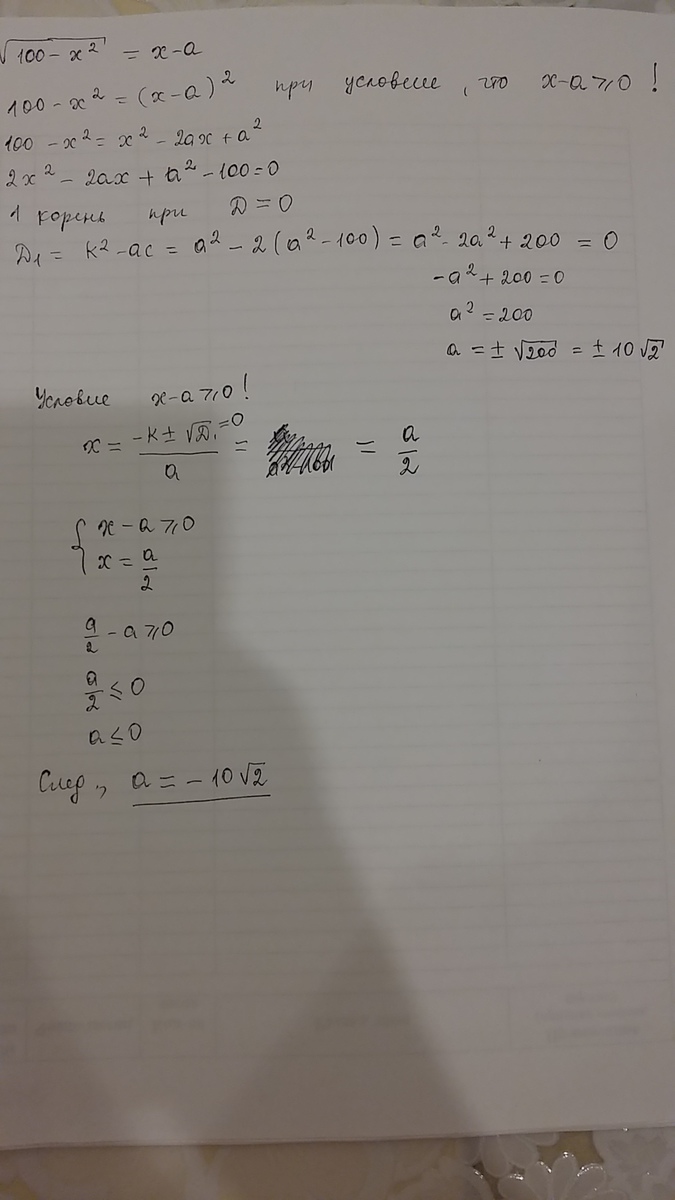 √100 - x² = x-a
100 - x² = (x-a)² при условие, что x-a ⩾ 0 !
100 - x² = x² - 2ax + a²
2x² - 2ax + a² - 100 = 0
1 корень при D = 0
D₁ = k² - ac = a² - 2(a² - 100) = a² - 2a² + 200 = 0
-a² + 200 = 0
a² = 200
a = ± √200 = ± 10√2
Условие x-a ⩾ 0 !
x = (-k ± √D₁ =0) / a = = a/2
{ x - a ⩾ 0
x = a/2
a/2 - a ⩾ 0
a/2 ≤ 0
a ≤ 0
След., a = - 10√2